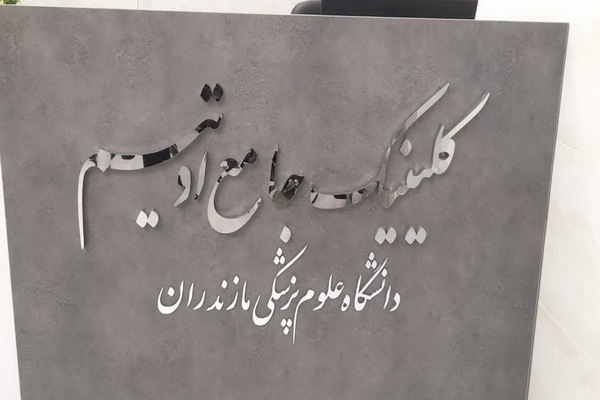 کلینیک جامع اوتیسم
دانشگاه علوم پزشکی مازندران